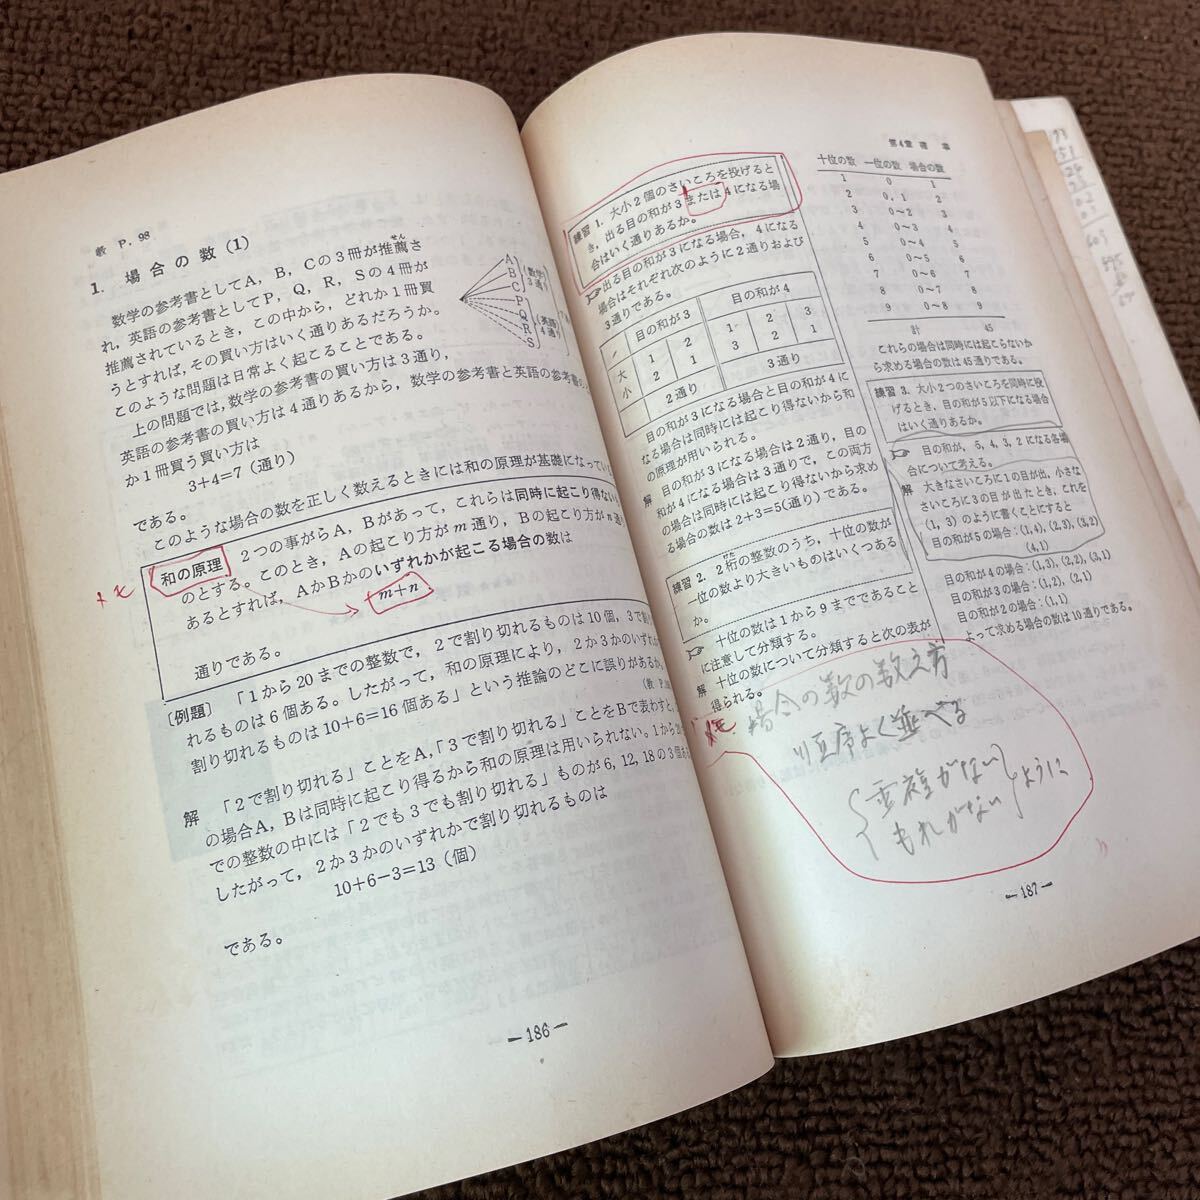 教 P. 98
1. 場合の数 (1)
数学の参考書としてA, B, Cの3冊が推薦さ
せん
れ, 英語の参考書としてP, Q, R, Sの4冊が
推薦されているとき, この中から, どれか1冊買
うとすれば, その買い方はいく通りあるだろうか。
このような問題は日常よく起こることである。
上の問題では, 数学の参考書の買い方は3通り,
英語の参考書の買い方は4通りあるから, 数学の参考書と英語の参考
か1冊買う買い方は
3+4=7 (通り)
である。
A
B
C
P
Q
R
S
数学
3通り
英語
4通
このような場合の数を正しく数えるときには和の原理が基礎になってい
和の原理 2つの事がらA, Bがあって, これらは同時に起こり得ない
のとする。このとき, Aの起こり方がm通り, Bの起こり方がn
あるとすれば, AかBかのいずれかが起こる場合の数は
m+n
通りである。
〔例題〕 「1から20までの整数で, 2で割り切れるものは10個, 3で
れるものは6個ある。したがって, 和の原理により, 2か3かのいずれ
割り切れるものは10+6=16個ある」という推論のどこに誤りがあるか
(教 P.
解 「2で割り切れる」ことをA, 「3で割り切れる」ことをBで表わすと,
の場合A, Bは同時に起こり得るから和の原理は用いられない。1から
での整数の中には「2でも3でも割り切れる」ものが6, 12, 18の3個
したがって, 2か3かのいずれかで割り切れるものは
10+6-3=13 (個)
である。
—186—
第4章 確 率
練習 1. 大小2個のさいころを投げると
き, 出る目の和が3または4になる場
合はいく通りあるか。
出る目の和が3になる場合, 4になる
場合はそれぞれ次のように2通りおよび
3通りである。
目の和が3 目の和が4
大 1 2 1 2 3
小 2 1 3 2 1
2通り 3通り
目の和が3になる場合と目の和が4に
なる場合は同時には起こり得ないから和
の原理が用いられる。
解 目の和が3になる場合は2通り, 目の
和が4になる場合は3通りで, この両方
の場合は同時には起こり得ないから求め
る場合の数は2+3=5(通り)である。
練習 2. 2桁の整数のうち, 十位の数が
けた
一位の数より大きいものはいくつある
か。
十位の数は1から9までであること
に注意して分類する。
解 十位の数について分類すると次の表が
得られる。
十位の数 一位の数 場合の数
1 0 1
2 0, 1 2
3 0〜2 3
4 0〜3 4
5 0〜4 5
6 0〜5 6
7 0〜6 7
8 0〜7 8
9 0〜8 9
計 45
これらの場合は同時には起こらないか
ら求める場合の数は45通りである。
練習 3. 大小2つのさいころを同時に投
げるとき, 目の和が5以下になる場合
はいく通りあるか。
目の和が, 5, 4, 3, 2になる各場
合について考える。
解 大きなさいころに1の目が出, 小さな
さいころに3の目が出たとき, これを
(1, 3)のように書くことにすると
目の和が5の場合: (1,4), (2,3), (3,2)
(4,1)
目の和が4の場合: (1,3), (2,2), (3,1)
目の和が3の場合: (1,2), (2,1)
目の和が2の場合: (1,1)
よって求める場合の数は10通りである。
場合の数の数え方
順序よく並べる
重複がない
もれがない
ように
—187—